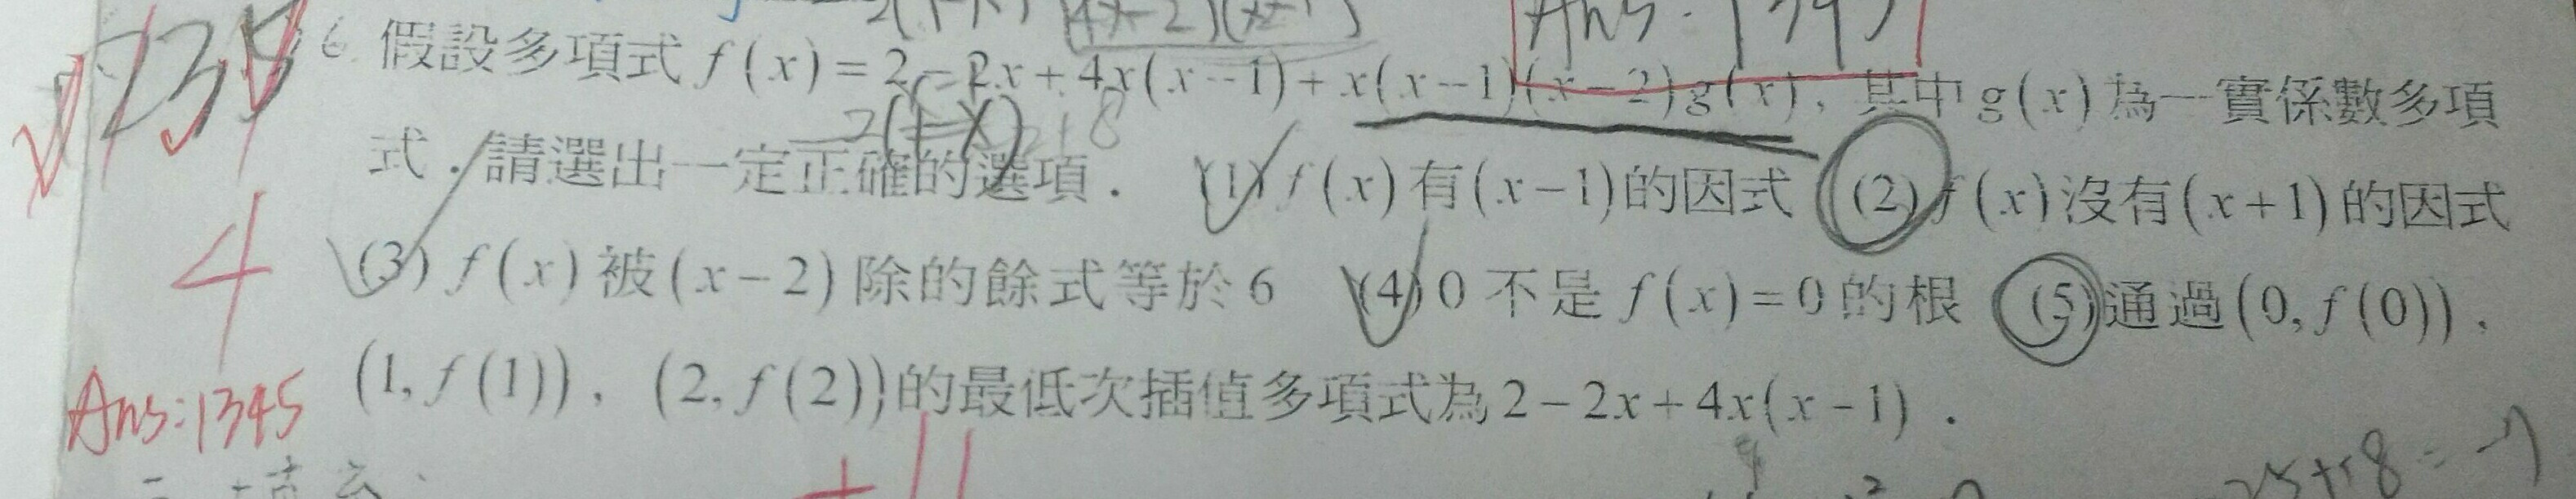 Ans: 1345
6. 假設多項式 f(x)=2-2x+4x(x-1)+x(x-1)(x-2)g(x), 其中g(x)為一實係數多項
-2(1-x)
式.請選出一定正確的選項. (1) f(x)有(x-1)的因式 (2) f(x)沒有(x+1)的因式
4 (3) f(x)被(x-2)除的餘式等於6 (4) 0不是f(x)=0的根 (5)通過(0,f(0)),
Ans:1345 (1,f(1)), (2,f(2))的最低次插值多項式為2-2x+4x(x-1).